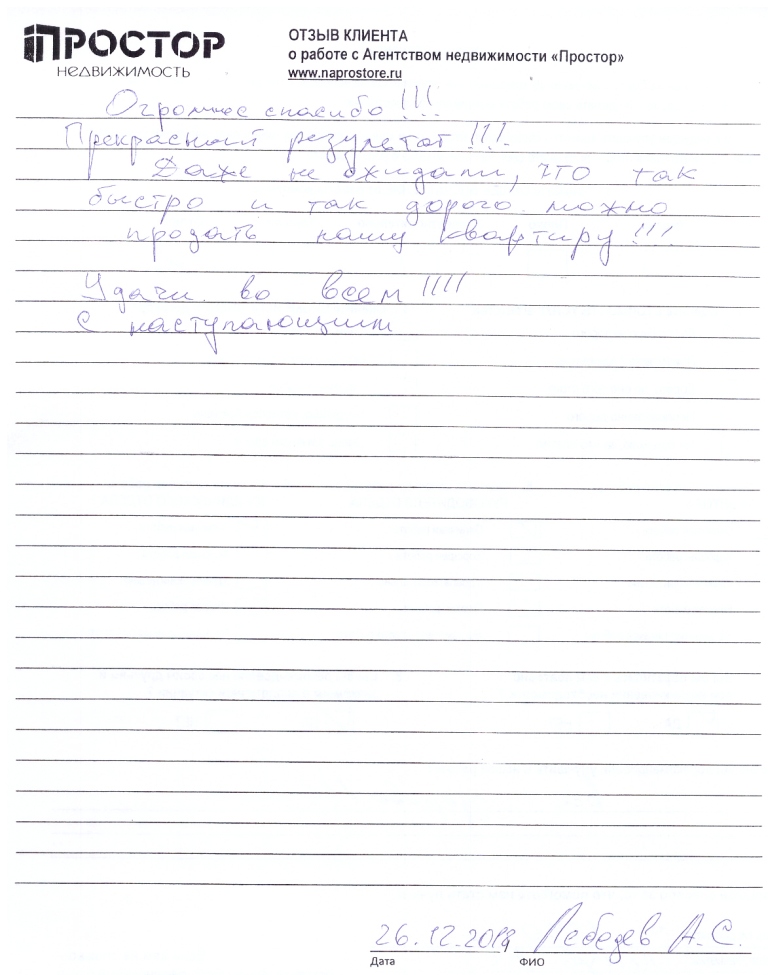 ПРОСТОР
НЕДВИЖИМОСТЬ
ОТЗЫВ КЛИЕНТА
о работе с Агентством недвижимости «Простор»
www.naprostore.ru
Огромное спасибо !!!
Прекрасный результат !!!
Даже не ожидали, что так
быстро и так дорого можно
продать нашу квартиру !!!
Удачи во всем !!!!
С наступающим
26.12.201 Лебедев А.С.
Дата ФИО